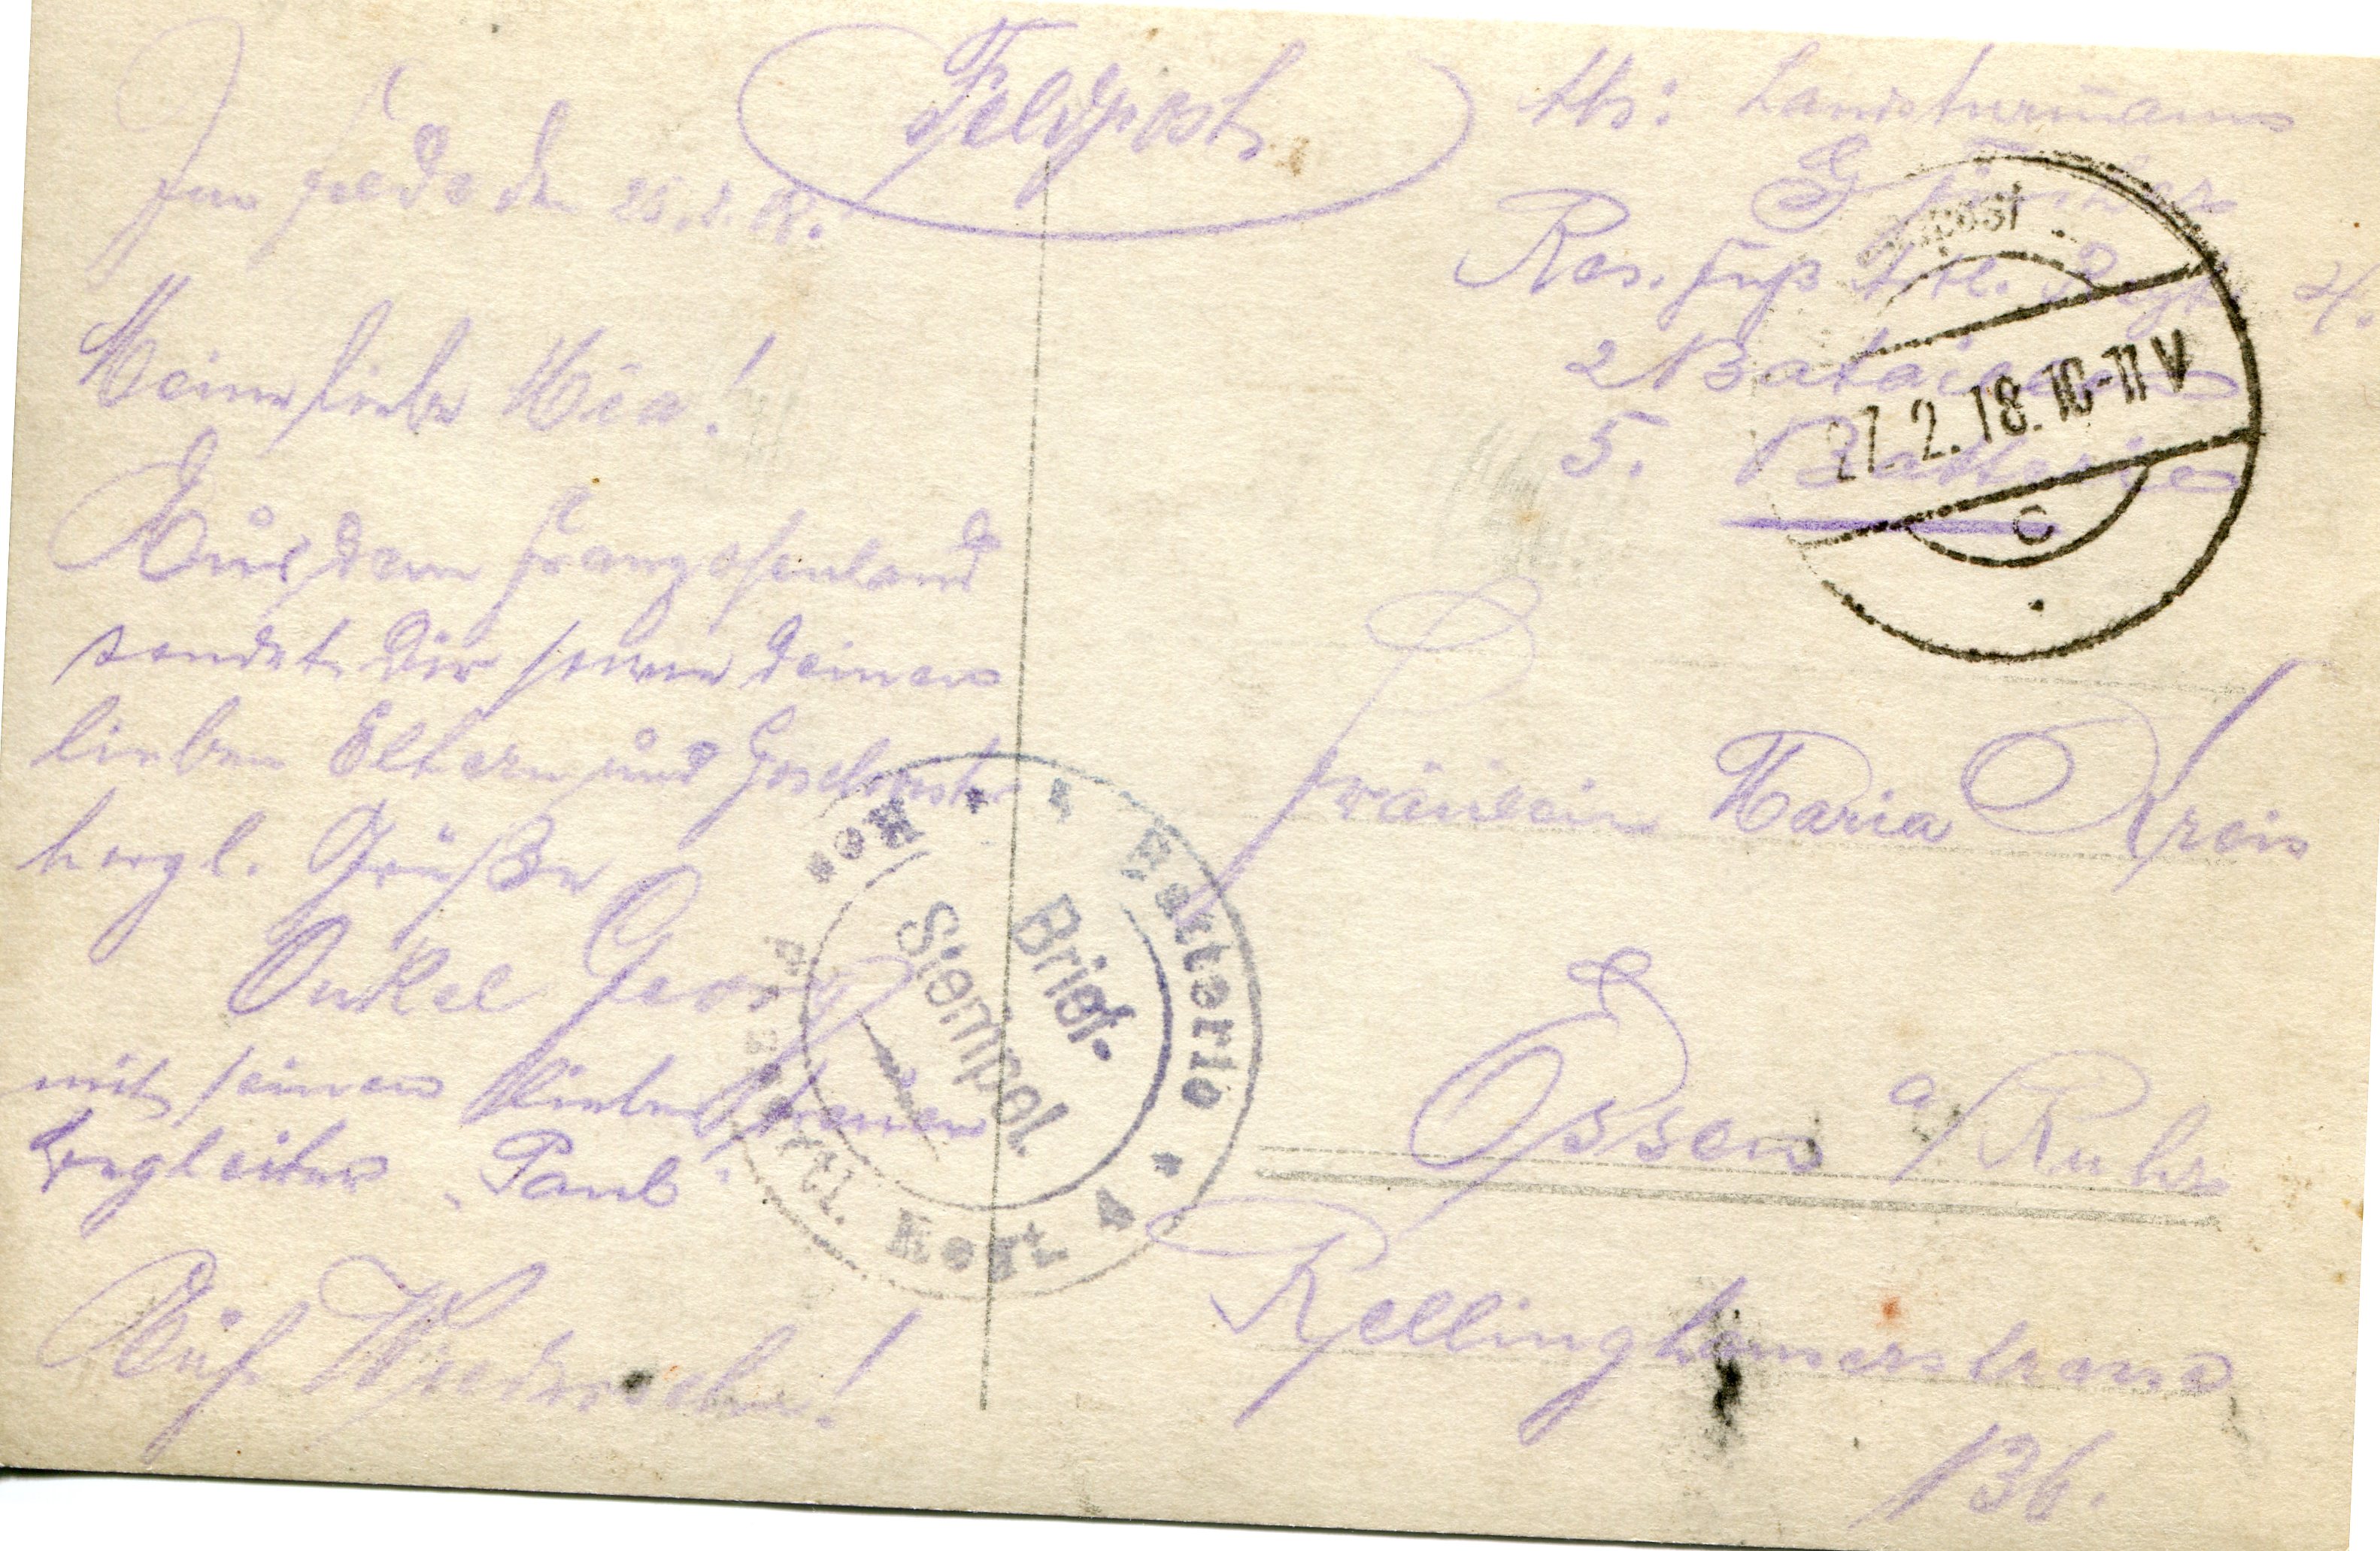 Feldpost
Im Felde den 26.2.18.
Meine liebe Mia!
Aus dem Franzosenland
sendet Dir sowie deinen
lieben Eltern und Geschwister
herzl. Grüße
Onkel Georg
mit seinen lieben treuen
begleiter „Paul"
Auf Wiedersehn!
Abs: Landsturmann
G
Res. Fuß Artl. Regt.
2 Bataillon
5. Batterie
Feldpost
27.2.18.10-11 V
c
Fräulein Maria Kreis
Essen a/Ruhr
Rellinghauserstrasse
136.
Batterie
Brief-
Stempel.
Artl. Regt.